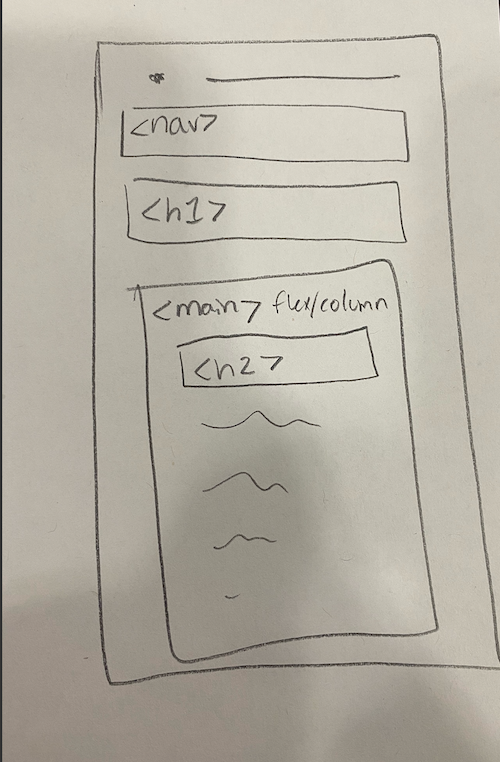 <nav>
<h1>
<main> flex/column
<h2>